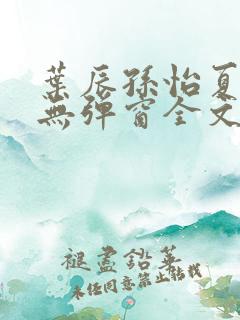 葉辰孫怡夏
無彈窗全文
褪盡鉛華
未经同意禁止转载